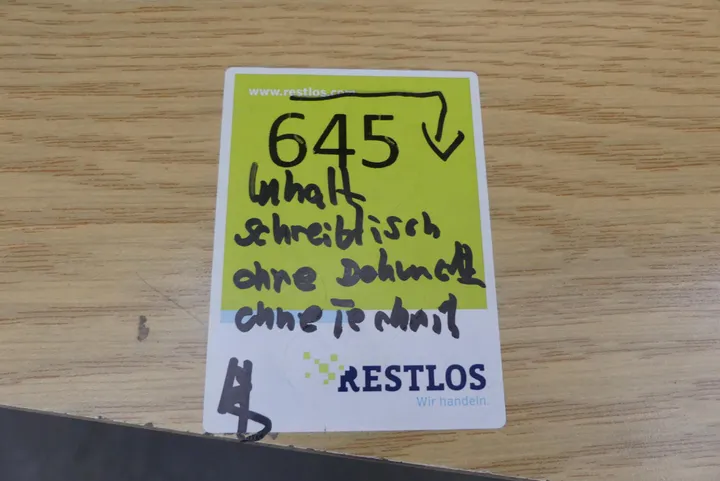 www.restlos.com
645
Inhalt
Schreibtisch
ohne
ohne Technik
RESTLOS
Wir handeln.